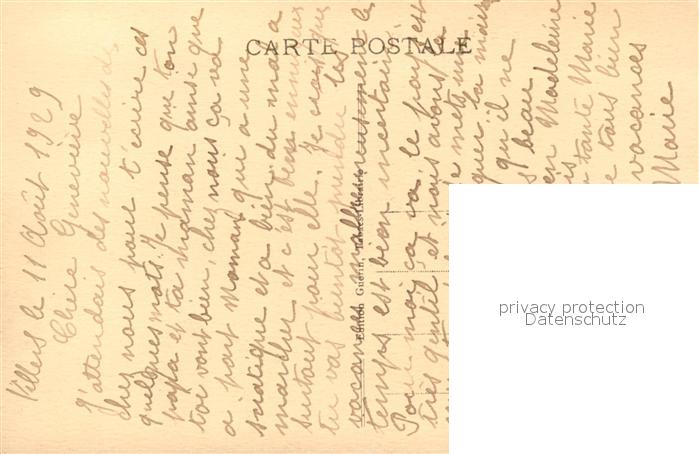 CARTE POSTALE
Edition Guérin, Nantes-Libraire
Villers le 11 Août 1929
Chère Geneviève
J'attendais des nouvelles de
chez nous pour t'écrire ces
quelques mots. Je pense que ton
papa et ta maman ainsi que
toi vont bien, chez nous ça va
a part Maman qui a une
sciatique et a bien du mal a
marcher et c'est bien ennuyeux
surtout pour elle. Je crois que
tu vas bientôt prendre tes
vacances malheureusement le
temps est bien incertain
Pour moi ça va. le pays est
très gentil et nous avons
metz
quer ta mais
qu'il ne
beau
en Madeleine
tante Marie
tous bien
vacances
Marie
privacy protection
Datenschutz